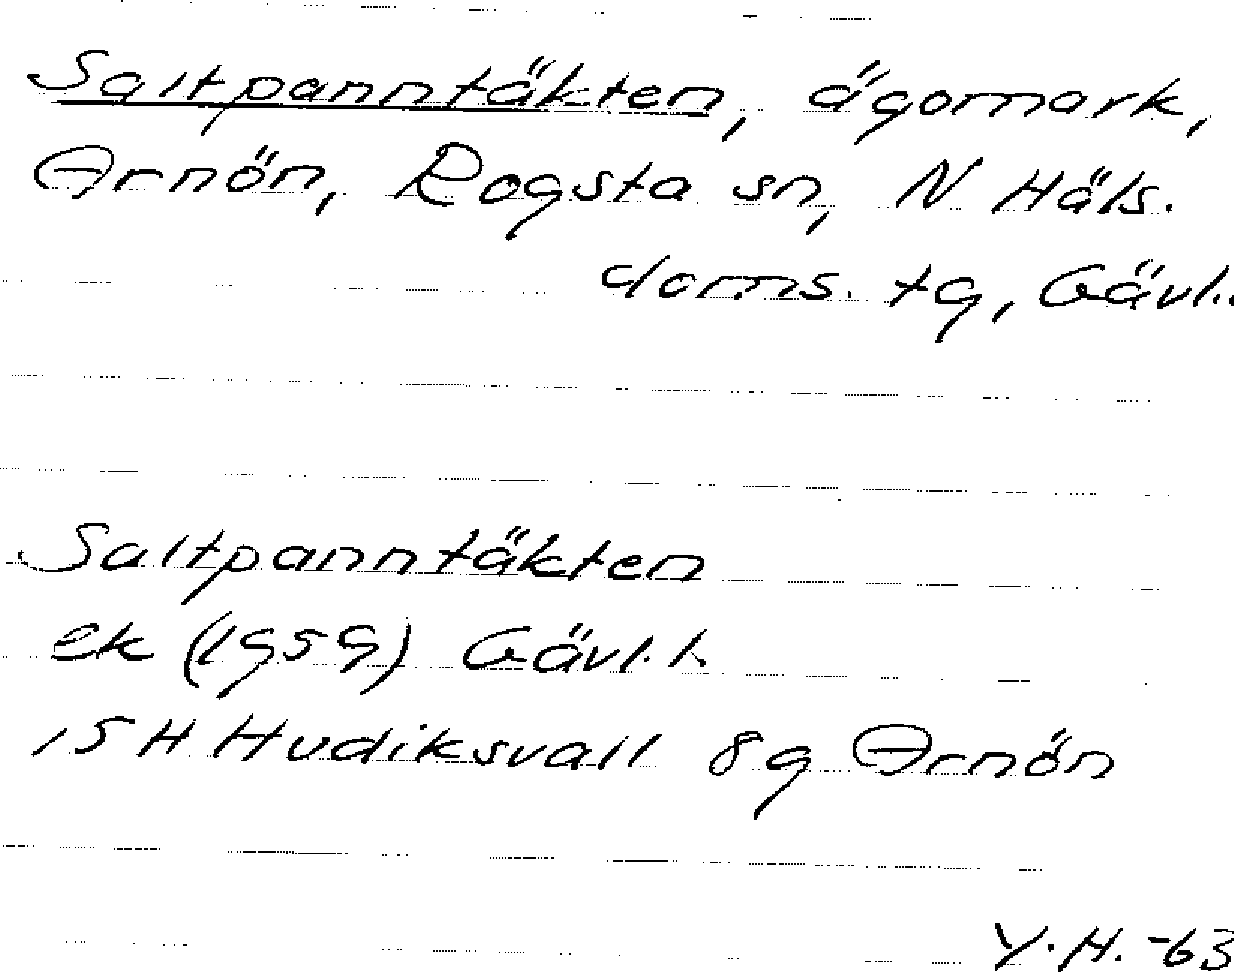 Saltpanntäkten, ägomark,
Arnön, Rogsta sn, N Häls.
doms. tg, Gävl..
Saltpanntäkten
ek (1959) Gävl. l.
15 H Hudiksvall 8g Arnön
Y.H. -63